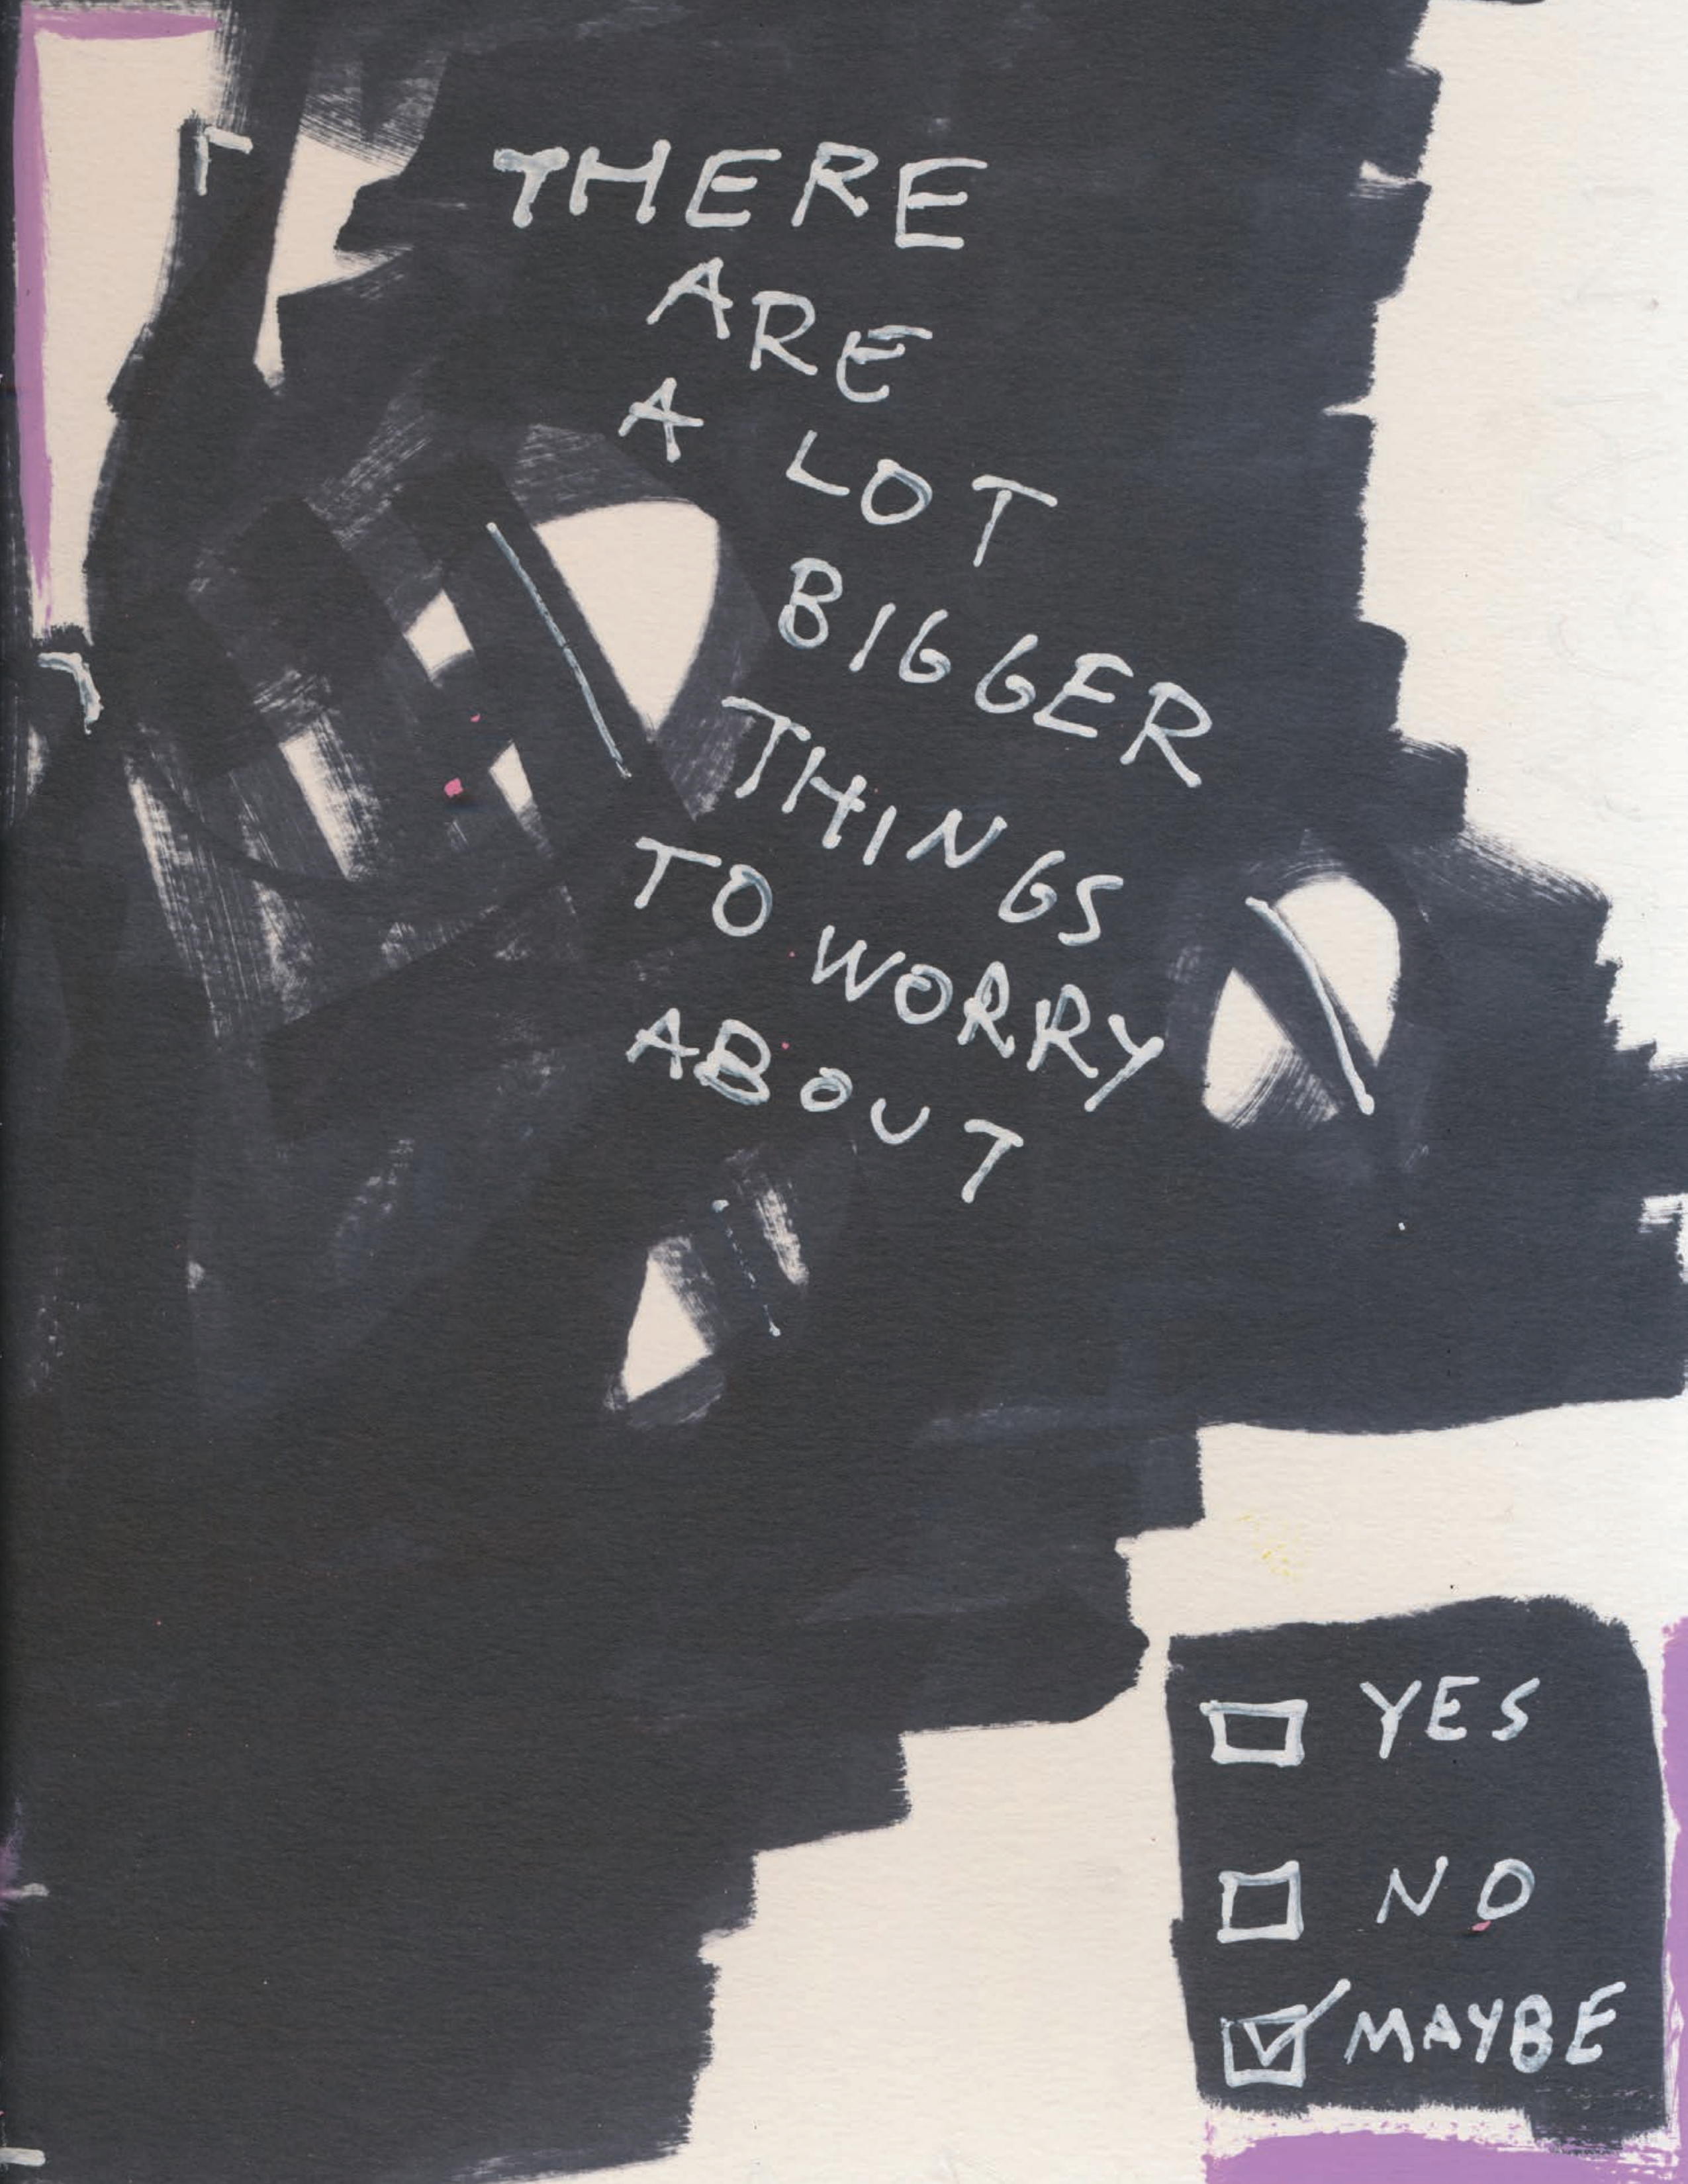 THERE
ARE
A LOT
BIGGER
THINGS
TO WORRY
ABOUT
YES
NO
MAYBE